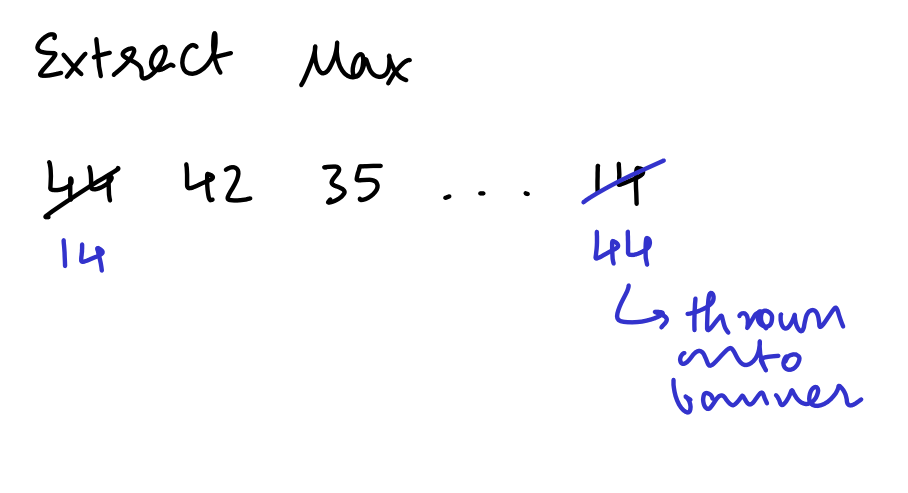 Extract Max
44 42 35 ... 14
14 44
thrown
onto
banner